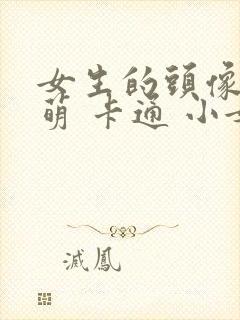 女生的頭像
萌 卡通 小
滅鳳